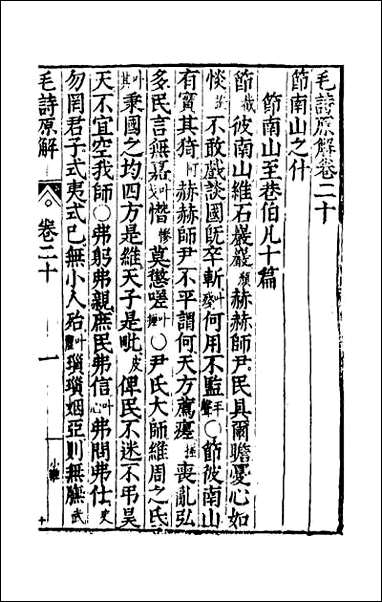 毛詩原解卷二十
節南山之什
節南山至巷伯凡十篇
節截彼南山維石巖巖顏赫赫師尹民具爾瞻憂心如
惔談不敢戲談國旣卒斬何用不監平聲○節彼南山
有實其猗何赫赫師尹不平謂何天方薦瘥喪亂弘
多民言無嘉憯慘莫懲嗟○尹氏大師維周之氐
秉國之均四方是維天子是毗皮俾民不迷不弔昊
天不宜空我師○弗躬弗親庶民弗信弗問弗仕史
勿罔君子式夷式已無小人殆瑣瑣姻亞則無膴武
毛詩原解
卷二十
一
小雅